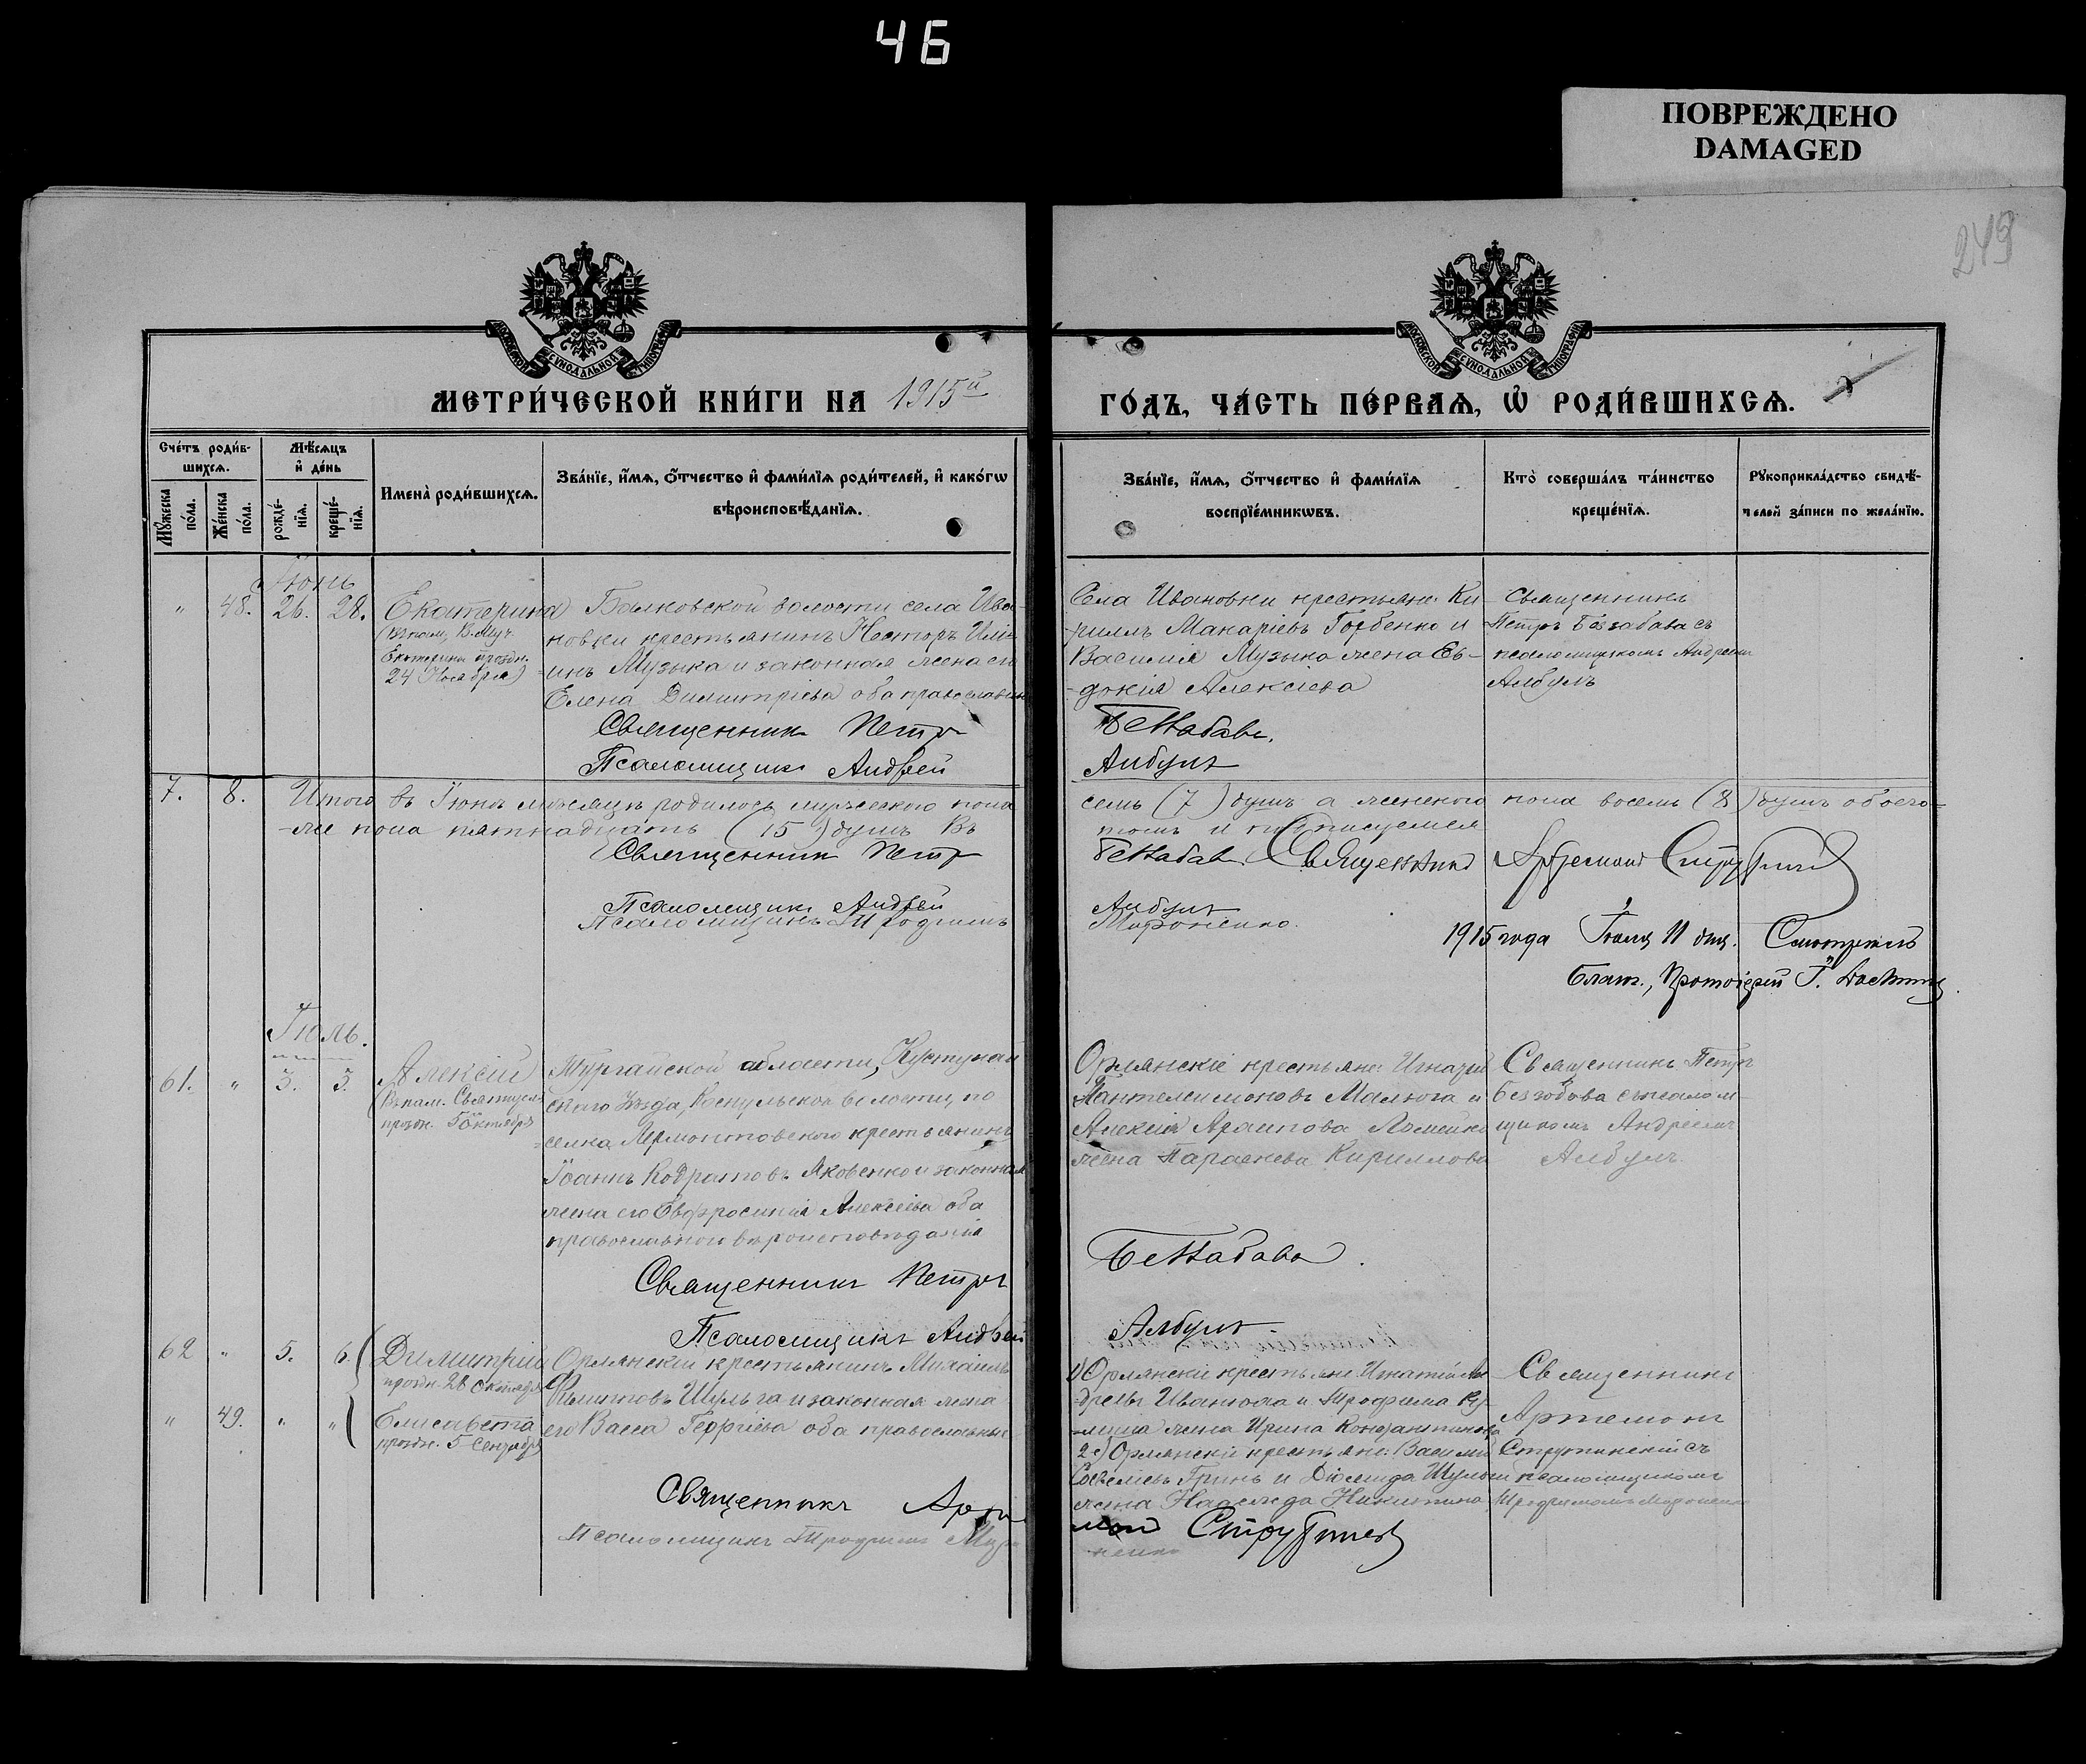 46
ПОВРЕЖДЕНО
DAMAGED
249
МОСКОВСКОЙ СѴНОДАЛЬНОЙ ТИПОГРАФІИ
МОСКОВСКОЙ СѴНОДАЛЬНОЙ ТИПОГРАФІИ
МЕТРИ́ЧЕСКОЙ КНИ́ГИ НА 1915й
ГО́ДЪ, ЧА́СТЬ ПЕ́РВАѦ, Ѽ РОДИ́ВШИХСѦ.
Сче́тъ роди́в-
шихсѧ.
Мꙋ́жеска по́ла.
Же́нска по́ла.
Мѣ́сѧцъ
и҆ де́нь
рожде́-
нїѧ.
креще́-
нїѧ.
Имена̀ роди́вшихсѧ.
Зва́нїе, и҆́мѧ, ѻ҆́тчество и҆ фами́лїѧ роди́телей, и҆ како́гѡ
вѣроисповѣ́данїѧ.
Зва́нїе, и҆́мѧ, ѻ҆́тчество и҆ фами́лїѧ
воспрїе́мникѡвъ.
Кто̀ соверша́лъ та́инство
креще́нїѧ.
Рꙋкоприкла́дство свидѣ́-
телей за́писи по жела́нїю.
Іюнь
" 48. 26. 28. Екатерина
(Въ пам. В. Муч.
Екатерины праздн.
24 Ноября)
Балковской волости села Ива-
новки крестьянинъ Несторъ Или-
инъ Музыка и законная жена его
Елена Димитріева оба православные
Священник Петръ
Псаломщикъ Андрей
Села Ивановки крестьяне: Ки-
риллъ Макаріевъ Горбенко и
Василія Музыка жена Ев-
докія Алексіева
Беззабава.
Албулъ
Священникъ
Петръ Беззабава съ
псаломщикомъ Андреемъ
Албулъ
7. 8. Итого въ Іюнѣ мѣсяцѣ родилось мужеского пола
семь (7) душъ а женского пола восемь (8) душъ обоего-
-же пола пятнадцать (15) душъ Въ
томъ и подписуемся
Священник Петръ
Беззабава. Священникъ Артемонъ Струтинскій
Псаломщикъ Андрей
Албулъ
Псаломщикъ Трофимъ
Мироненко.
1915 года Іюля 11 дня. Смотрелъ
Благ., Протоіерей І.
Іюль.
61. " 3. 5. Алексій
(Въ пам. Святителя
праздн. 5 Октября
Тургайской области, Кустунай-
скаго Уѣзда, волости, по
селка Лермонтовского крестьянинъ
Іоаннъ Кодратовъ Яковенко и законная
жена его Евфросинія Алексіева оба
православного вѣроисповѣданія
Священникъ Петръ
Псаломщикъ Андрей
Орлянскіе крестьяне: Игнатій
Пантелеимоновъ Малюга и
жена Параскева Кириллова
Беззабава.
Албулъ.
Священникъ Петръ
Беззабава съ псалом-
щикомъ Андреемъ
Албулъ.
62 " 5. 6. Димитрій
праздн. 26 Октября
" 49. " " Елисавета
праздн. 5 Сентября
Орлянскій крестьянинъ Михаилъ
Филиповъ Шульга и законная жена
его Васса Георгіева оба православные
Священникъ Арте-
Псаломщикъ Трофимъ Миро-
1) Орлянскіе крестьяне: Игнатій Ан-
дреевъ Иванюха и Трофима Ку-
жена Ирина Константинова
2) Орлянскіе крестьяне: Василій
Савеліевъ Гринь и Діомида Шульги
жена Надежда Никитина
монъ Струтинскій
ненко
Священникъ
Артемонъ
Струтинскій съ
псаломщикомъ
Трофимомъ Мироненко